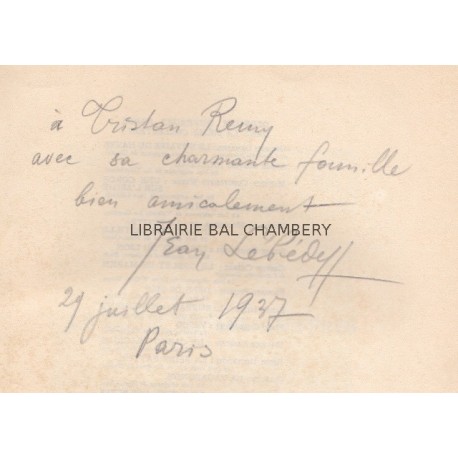 à Tristan Remy
avec sa charmante famille
bien amicalement
LIBRAIRIE BAL CHAMBERY
Jean Lebédeff
29 juillet 1937
Paris